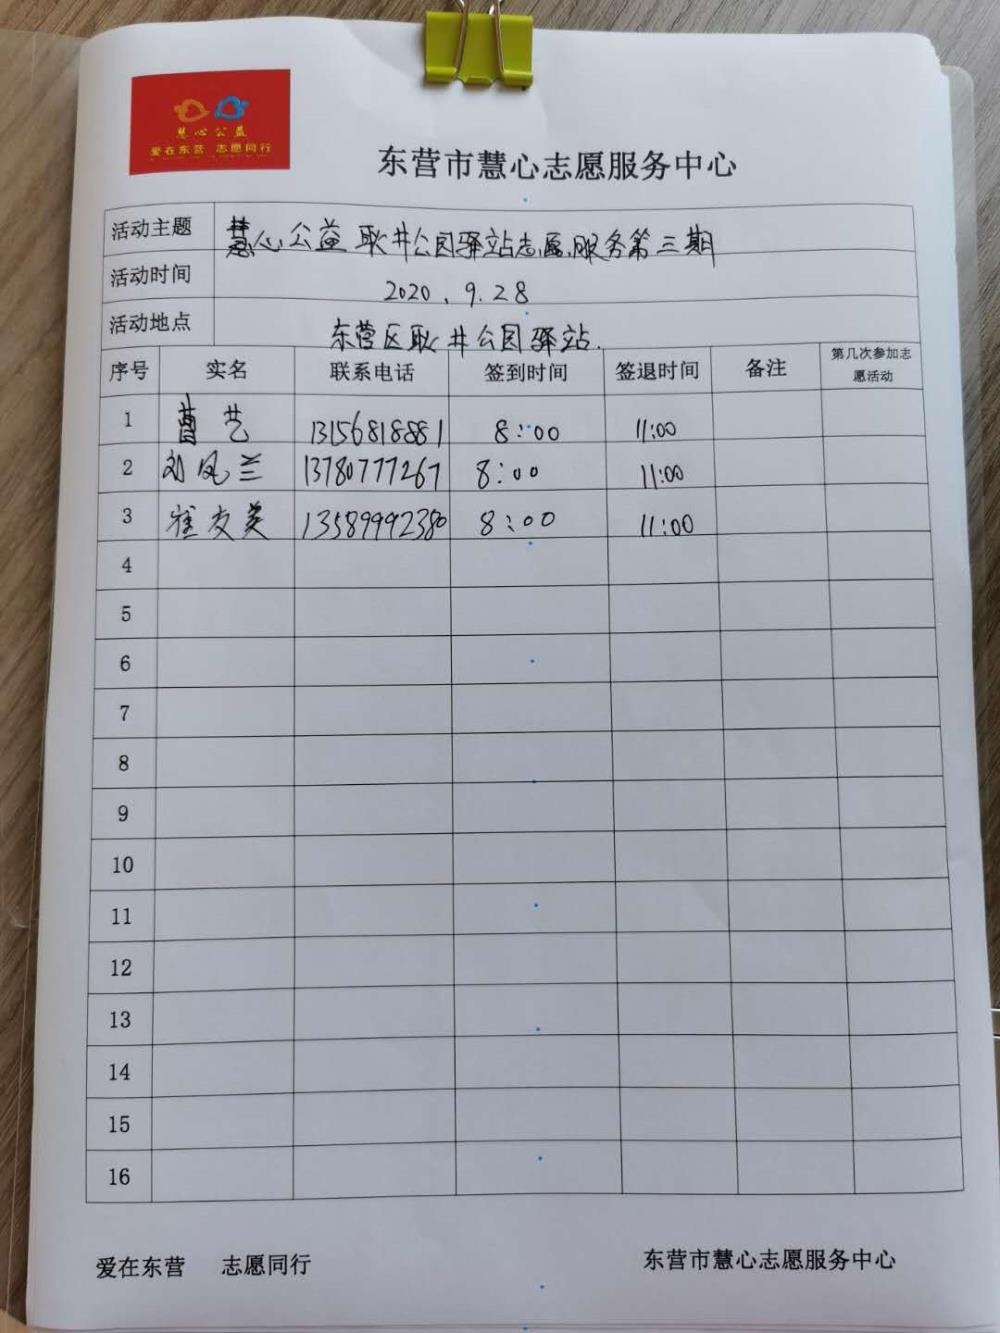 慧心公益
爱在东营 志愿同行
东营市慧心志愿服务中心
活动主题 慧心公益耿井公园驿站志愿服务第三期
活动时间 2020.9.28
活动地点 东营区耿井公园驿站.
序号 实名 联系电话 签到时间 签退时间 备注 第几次参加志愿活动
1 曹艺 13156818881 8:00 11:00
2 刘凤兰 13780777267 8:00 11:00
3 崔友美 13589992380 8:00 11:00
4
5
6
7
8
9
10
11
12
13
14
15
16
爱在东营 志愿同行 东营市慧心志愿服务中心